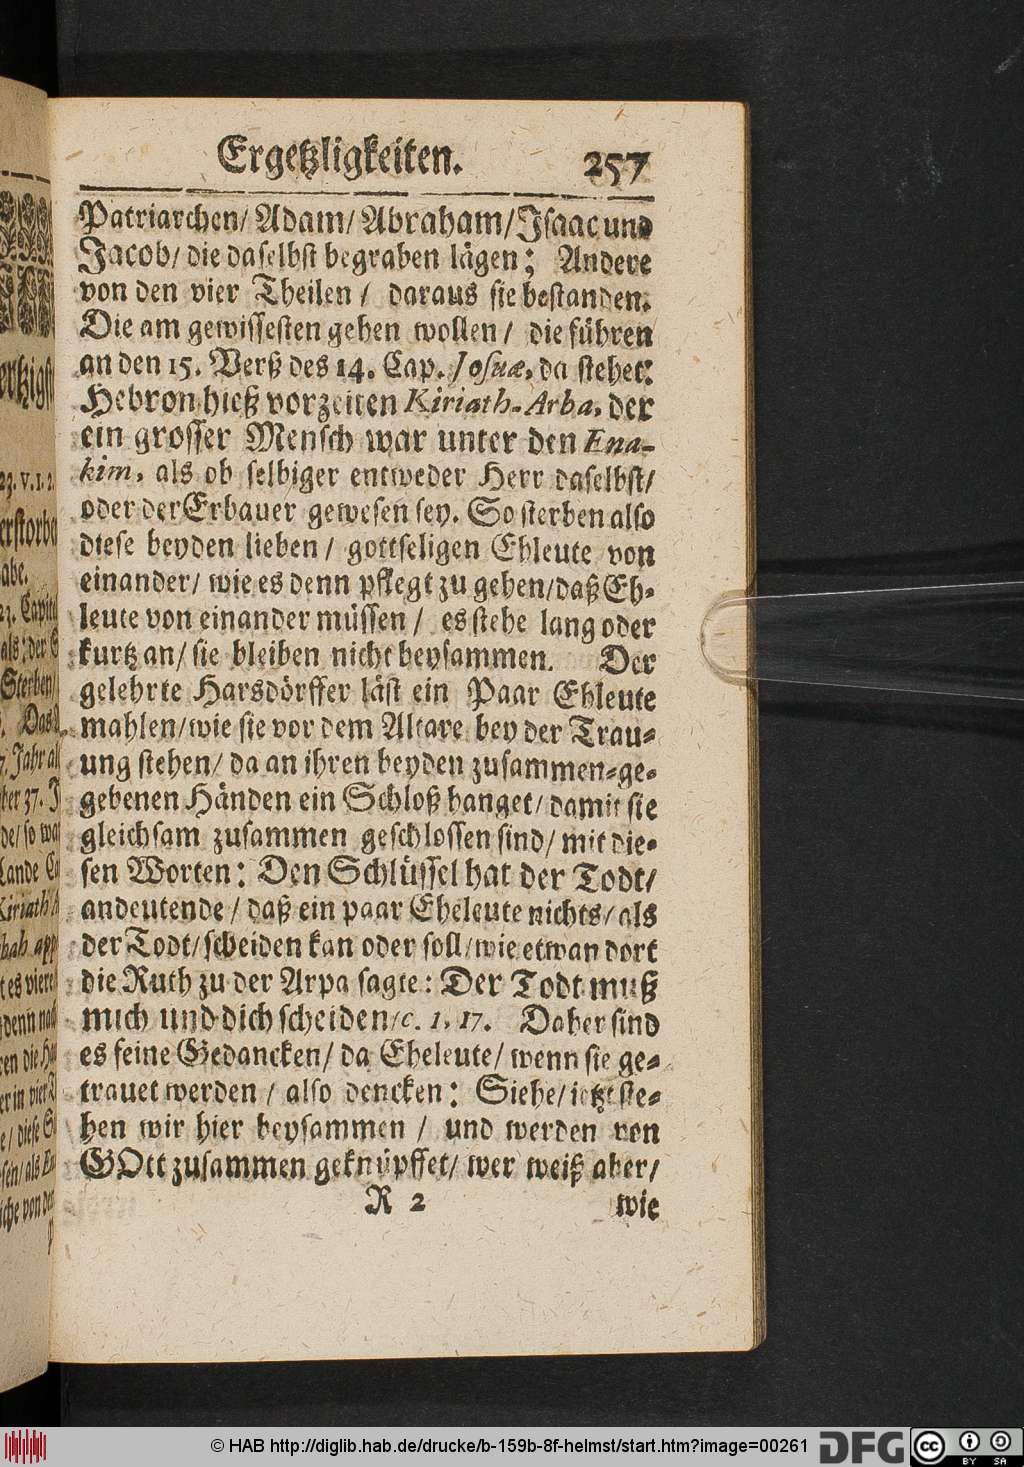 Ergetzligkeiten. 257
Patriarchen/ Adam/ Abraham/ Isaac und
Jacob/ die daselbst begraben lägen; Andere
von den vier Theilen/ daraus sie bestanden.
Die am gewissesten gehen wollen/ die führen
an den 15. Verß des 14. Cap. Josuæ, da stehet:
Hebron hieß vorzeiten Kiriath-Arba, der
ein grosser Mensch war unter den Ena-
kim, als ob selbiger entweder Herr daselbst/
oder der Erbauer gewesen sey. So sterben also
diese beyden lieben/ gottseligen Ehleute von
einander/ wie es denn pflegt zu gehen/ daß Eh-
leute von einander müssen/ es stehe lang oder
kurtz an/ sie bleiben nicht beysammen. Der
gelehrte Harsdörffer läst ein Paar Ehleute
mahlen/ wie sie vor dem Altare bey der Trau-
ung stehen/ da an ihren beyden zusammen-ge-
gebenen Händen ein Schloß hanget/ damit sie
gleichsam zusammen geschlossen sind/ mit die-
sen Worten: Den Schlüssel hat der Todt/
andeutende/ daß ein paar Eheleute nichts/ als
der Todt/ scheiden kan oder soll/ wie etwan dort
die Ruth zu der Arpa sagte: Der Todt muß
mich und dich scheiden/ c. 1, 17. Daher sind
es feine Gedancken/ da Eheleute/ wenn sie ge-
trauet werden/ also dencken: Siehe/ ietzt ste-
hen wir hier beysammen/ und werden von
GOtt zusammen geknüpffet/ wer weiß aber/
R 2 wie
23. v. 1. 2.
abe.
23. Capitel
als: der
Sterben/
Das
7. Jahr
ber 37. J
de/ so war
Lande
Kiriath
t es viere
denn
ren die
er in vier
e/ diese
sen/ als
iche von den
© HAB http://diglib.hab.de/drucke/b-159b-8f-helmst/start.htm?image=00261
DFG
cc BY SA